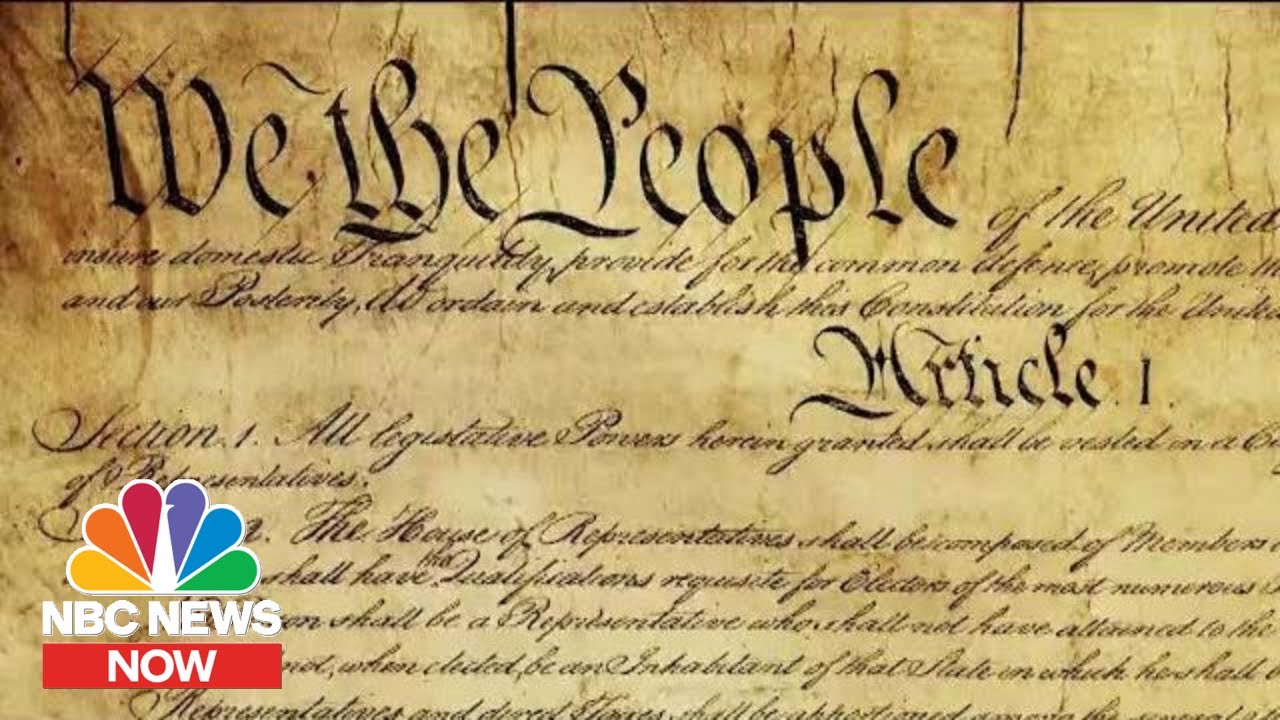 We the People of the United
insure domestic Tranquility, provide for the common defence, promote the
and our Posterity, do ordain and establish this Constitution for the United
Article. I.
Section. 1. All legislative Powers herein granted shall be vested in a
of Representatives.
The House of Representatives shall be composed of Members
shall have the Qualifications requisite for Electors of the most numerous
shall be a Representative who shall not have attained to the
not, when elected, be an Inhabitant of that State in which he shall
Representatives and direct Taxes shall be apportioned among the
NBC NEWS
NOW